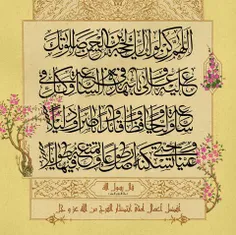 اللهم کن لولیک الحجة بن الحسن صلواتک
علیه و علی آبائه فی هذه الساعة و فی کل
ساعة ولیا و حافظا و قائدا و ناصرا و دلیلا و
عینا حتی تسکنه ارضک طوعا و تمتعه فیها طویلا
قال رسول الله
افضل اعمال امتی انتظار الفرج من الله عز و جل